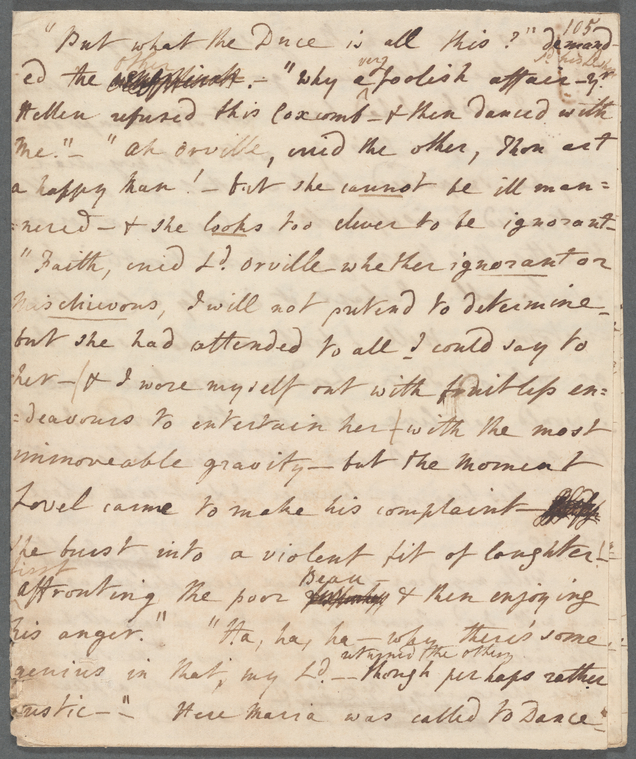 105
"But what the Duce is all this?" demand-
other very
ed the . – "Why a foolish affair – yr.
Hellen refused this Coxcomb – & then danced with
me." – "Ah Orville, cried the other, thou art
a happy Man! – but she cannot be ill man=
=nered – & she looks too clever to be ignorant –
"Faith, cried Ld. Orville whether ignorant or
mischievous, I will not pretend to determine –
but she had attended to all I could say to
her – (& I wore myself out with fruitless en=
=deavours to entertain her) – with the most
immoveable gravity – but the moment
Lovel came to make his complaint –
she burst into a violent fit of laughter!
first Beau
affronting the poor & then enjoying
his anger." "Ha, ha, ha – why there's some
returned the other,
genius in that, my Ld. – though perhaps rather
rustic – " Here Maria was called to Dance